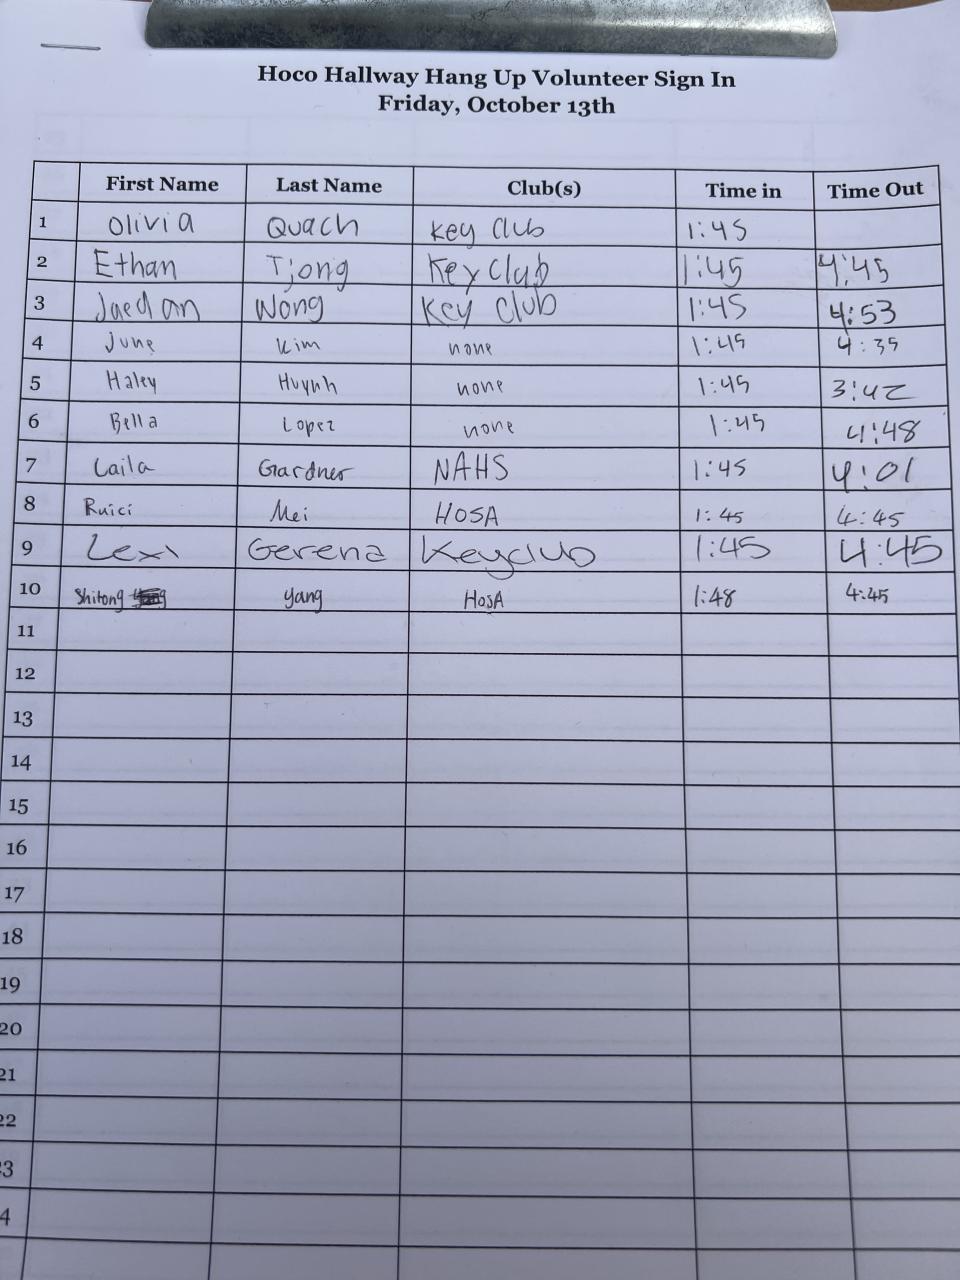 Hoco Hallway Hang Up Volunteer Sign In
Friday, October 13th
First Name Last Name Club(s) Time in Time Out
1 Olivia Quach Key Club 1:45
2 Ethan Tjong Key Club 1:45 4:45
3 Jaedan Wong Key Club 1:45 4:53
4 June Kim none 1:45 4:35
5 Haley Huynh none 1:45 3:42
6 Bella Lopez none 1:45 4:48
7 Laila Gardner NAHS 1:45 4:01
8 Ruici Mei HOSA 1:45 4:45
9 Lexi Gerena Keyclub 1:45 4:45
10 Shitong Yang HOSA 1:48 4:45
11
12
13
14
15
16
17
18
19
20
21
22
3
4